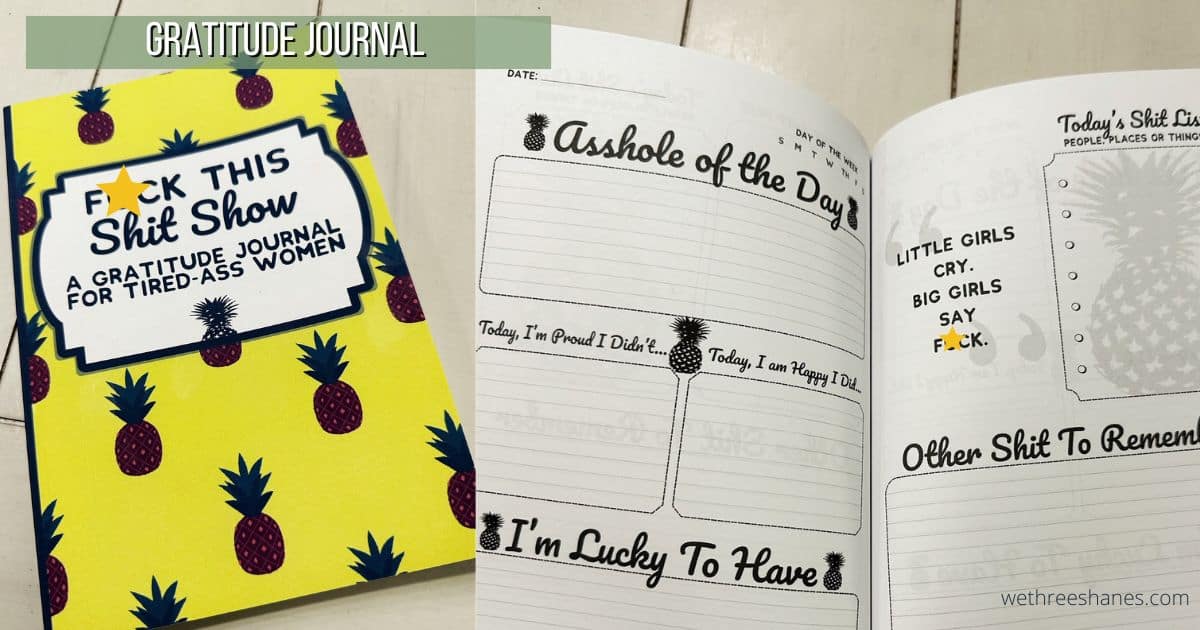 GRATITUDE JOURNAL
F CK THIS
Shit Show
A GRATITUDE JOURNAL
FOR TIRED-ASS WOMEN
DATE:
DAY OF THE WEEK
S M T W TH F S
Asshole of the Day
Today, I'm Proud I Didn't...
Today, I am Happy I Did...
I'm Lucky To Have
Today's Shit Lis
PEOPLE, PLACES OR THING
LITTLE GIRLS
CRY.
BIG GIRLS
SAY
F CK.
Other Shit To Rememb
wethreeshanes.com